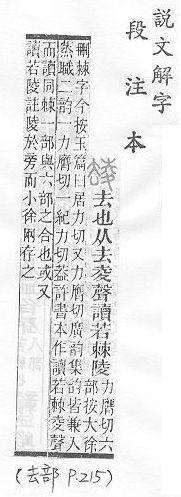 說文解字
段注本
去也从去夌聲讀若棘陵
力膺切六
部按大徐
刪棘字今按玉篇曰居力切又力膺切廣韵集韵皆兼入
蒸職二韵一力膺切一紀力切葢許書本作讀若棘夌聲
而讀同棘一部與六部之合也或又
讀若陵註陵於旁而小徐兩存之
(去部 P.215)